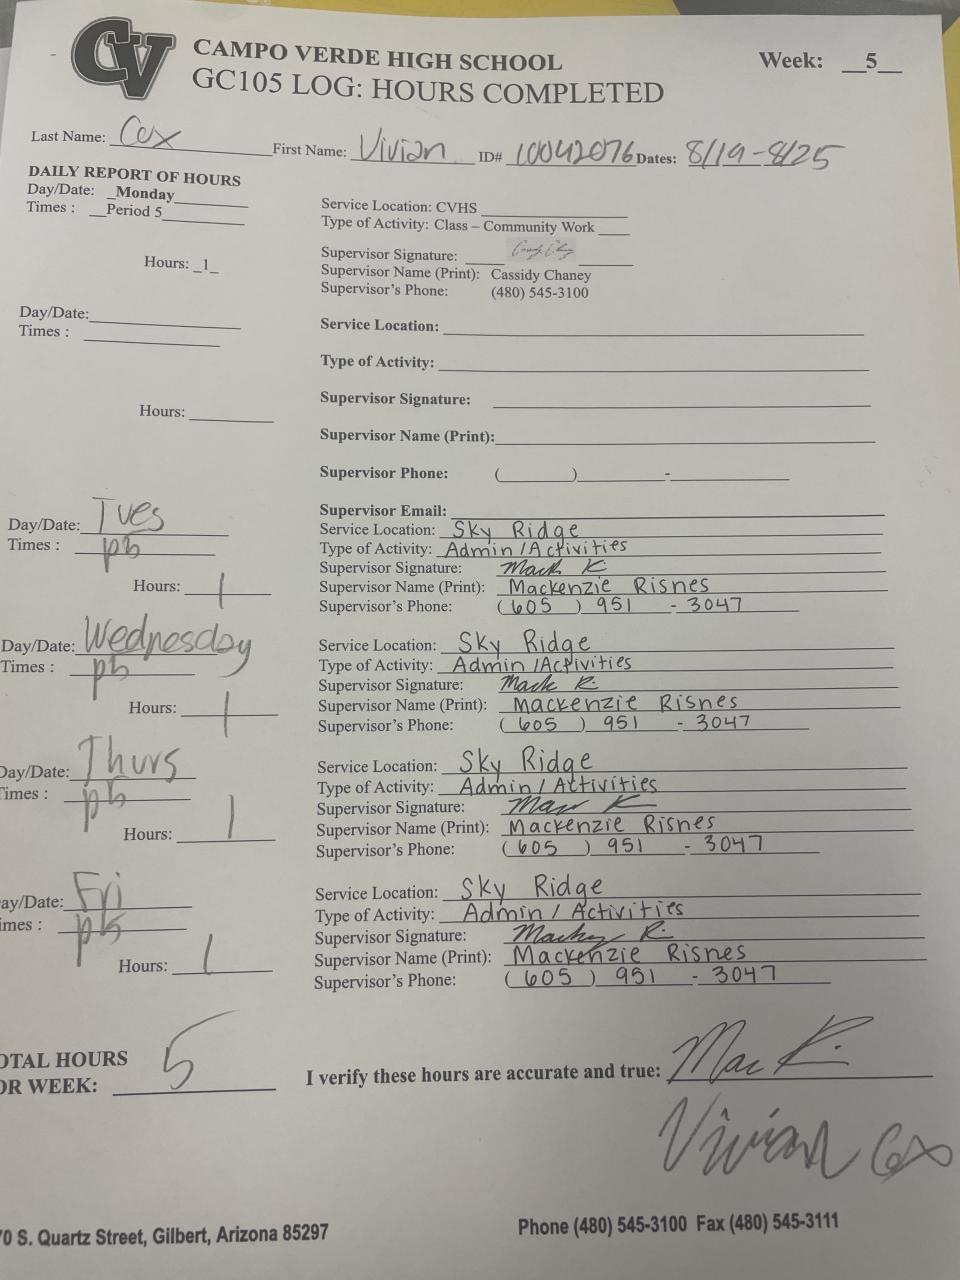 CV
CAMPO VERDE HIGH SCHOOL
Week: __5__
GC105 LOG: HOURS COMPLETED
Last Name: Cox First Name: Vivian ID# 10042076 Dates: 8/19-8/25
DAILY REPORT OF HOURS
Day/Date: _Monday
Times : __Period 5
Service Location: CVHS
Type of Activity: Class – Community Work
Hours: _1_
Supervisor Signature:
Supervisor Name (Print): Cassidy Chaney
Supervisor's Phone: (480) 545-3100
Day/Date:
Times :
Service Location:
Type of Activity:
Hours:
Supervisor Signature:
Supervisor Name (Print):
Supervisor Phone: ( ) -
Supervisor Email:
Day/Date: Tues
Times : p5
Hours: 1
Service Location: Sky Ridge
Type of Activity: Admin /Activities
Supervisor Signature: Mack R
Supervisor Name (Print): Mackenzie Risnes
Supervisor's Phone: (605) 951 - 3047
Day/Date: Wednesday
Times : p5
Hours: 1
Service Location: Sky Ridge
Type of Activity: Admin /Activities
Supervisor Signature: Mack R.
Supervisor Name (Print): Mackenzie Risnes
Supervisor's Phone: (605) 951 - 3047
Day/Date: Thurs
Times : p5
Hours: 1
Service Location: Sky Ridge
Type of Activity: Admin / Activities
Supervisor Signature: Mac R
Supervisor Name (Print): Mackenzie Risnes
Supervisor's Phone: (605) 951 - 3047
ay/Date: Fri
imes : p5
Hours: 1
Service Location: Sky Ridge
Type of Activity: Admin / Activities
Supervisor Signature: R.
Supervisor Name (Print): Mackenzie Risnes
Supervisor's Phone: (605) 951 - 3047
OTAL HOURS
OR WEEK: 5
I verify these hours are accurate and true: Mac R.
Vivian Cox
70 S. Quartz Street, Gilbert, Arizona 85297
Phone (480) 545-3100 Fax (480) 545-3111